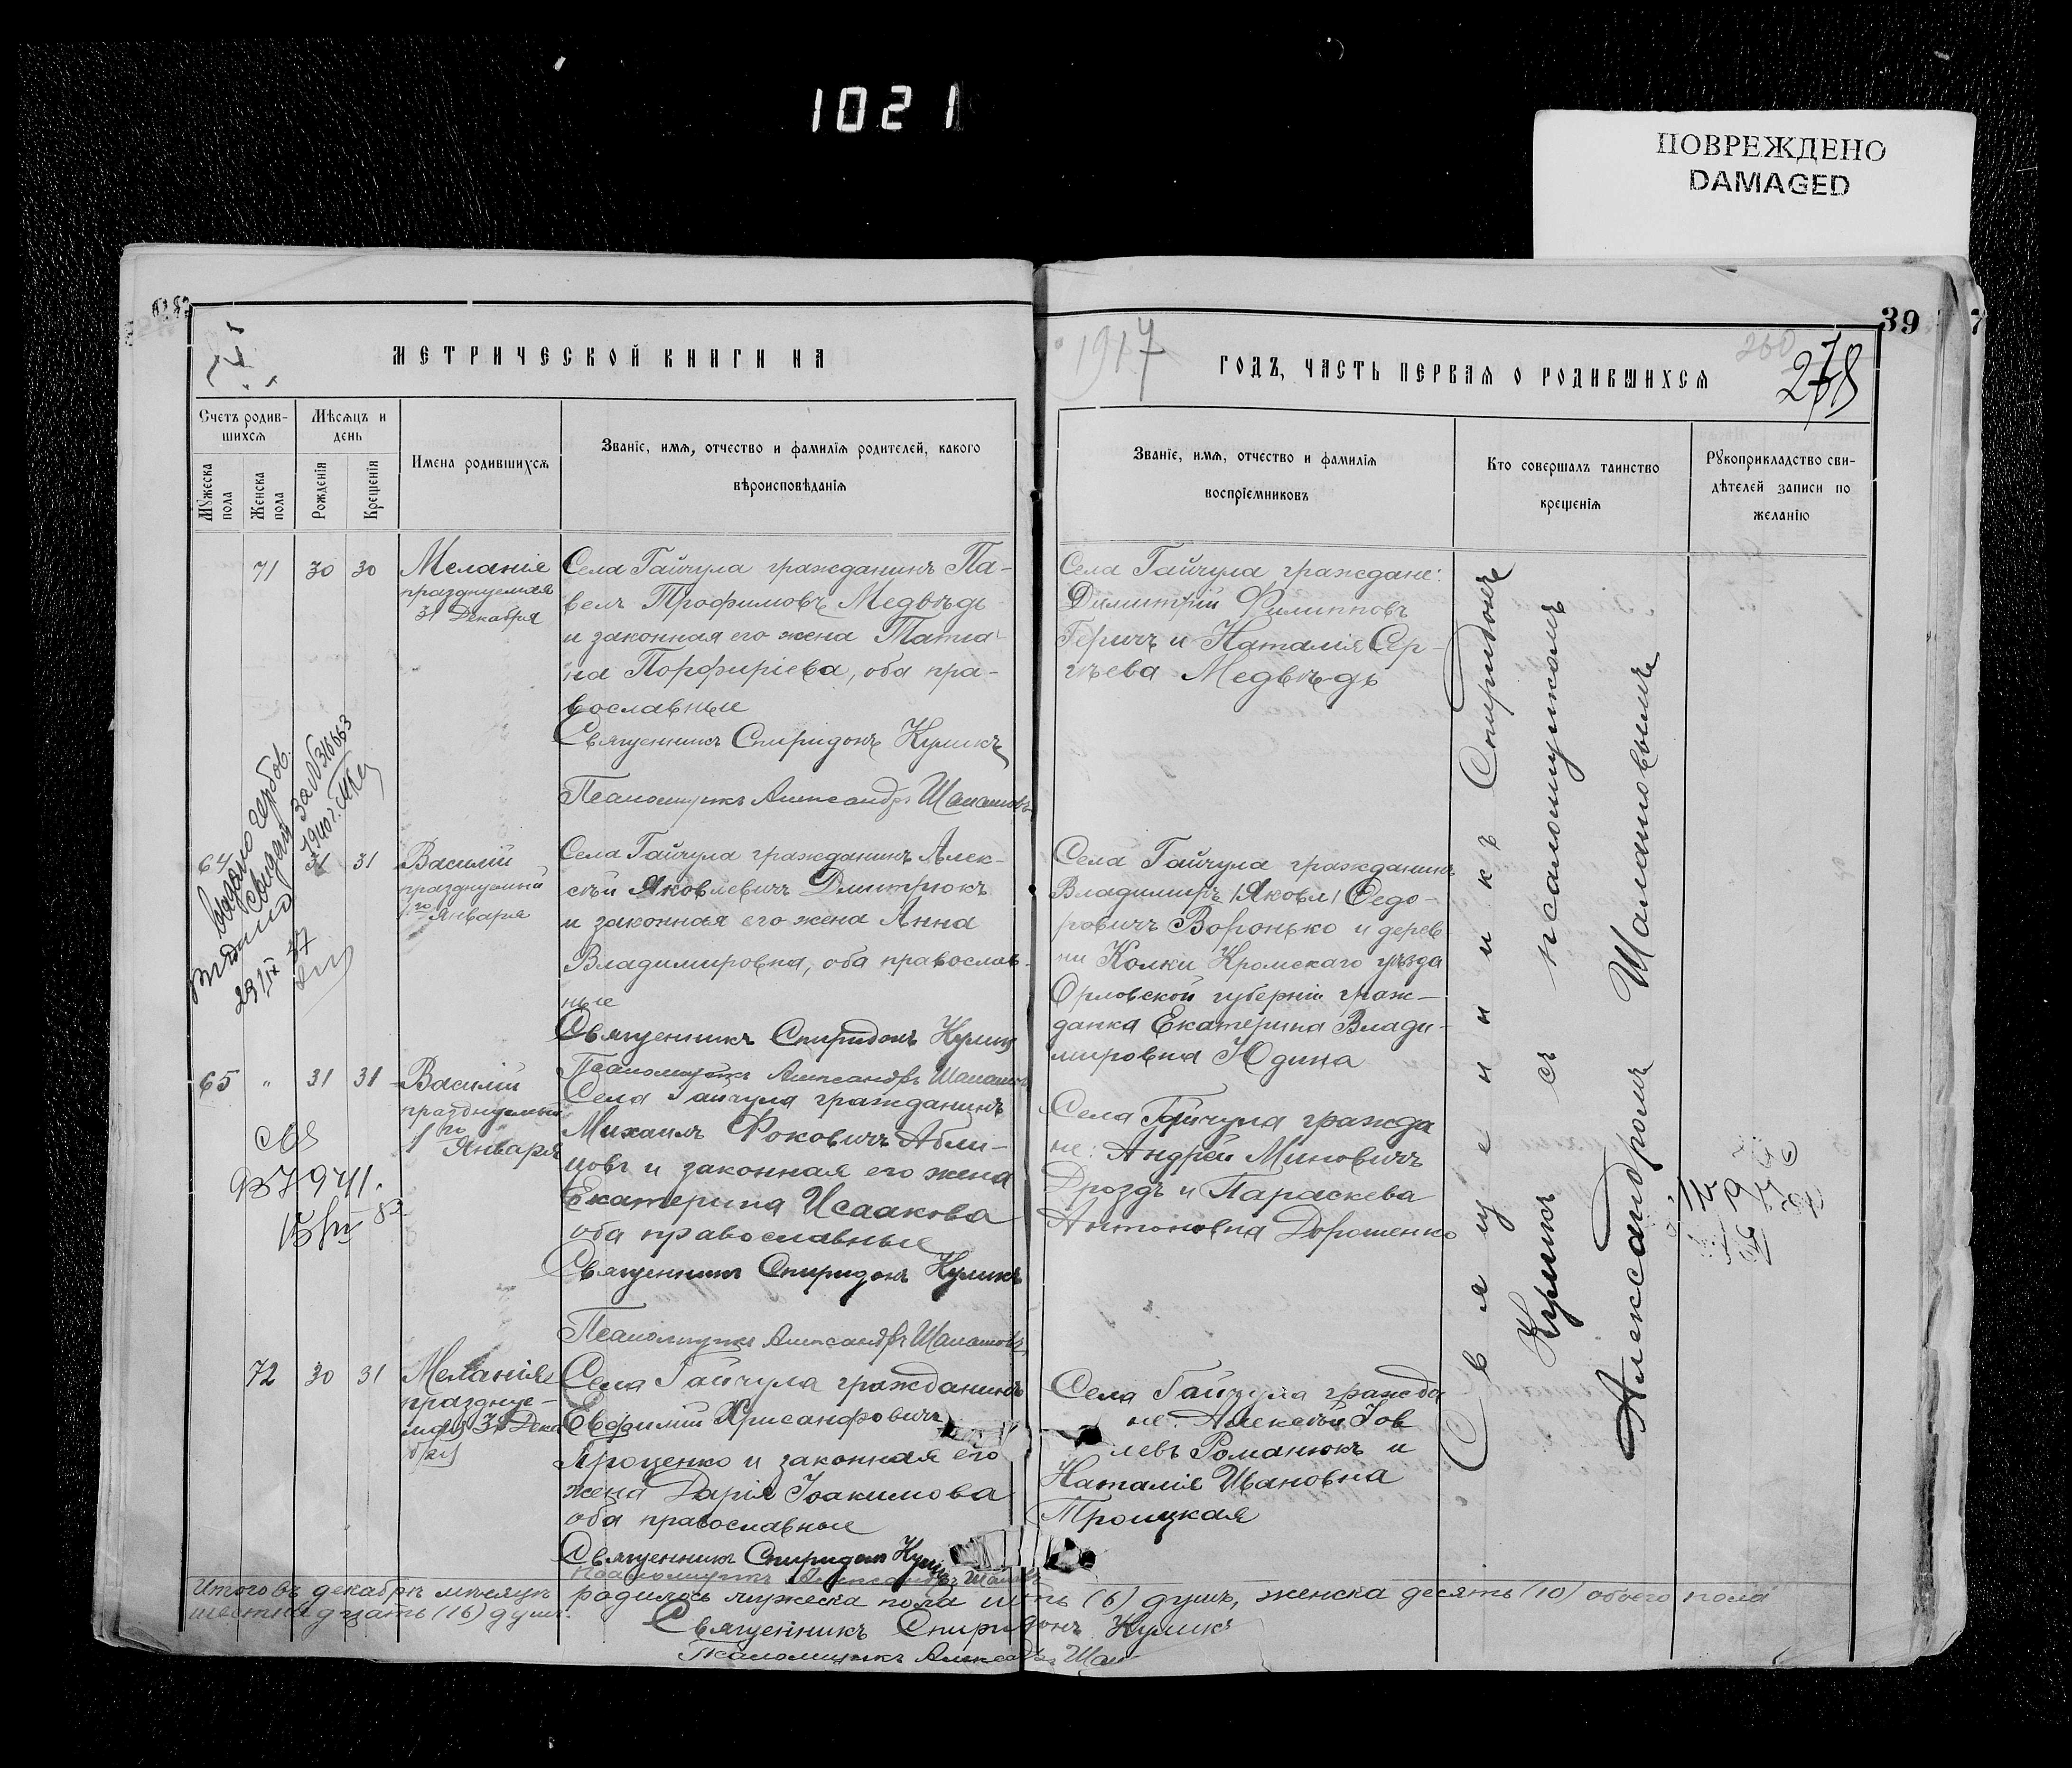 1021
ПОВРЕЖДЕНО
DAMAGED
39
7
МЕТРИЧЕСКОЙ КНИГИ НА
1917
ГОДЪ, ЧАСТЬ ПЕРВАЯ О РОДИВШИХСЯ
260
Счетъ родив-
шихся
Мѣсяцъ и
день
Мужеска
пола
Женска
пола
Рожденія
Крещенія
Имена родившихся
Званіе, имя, отчество и фамилія родителей, какого
вѣроисповѣданія
Званіе, имя, отчество и фамилія
воспріемниковъ
Кто совершалъ таинство
крещенія
Рукоприкладство сви-
дѣтелей записи по
желанію
71 30 30 Меланія
празднуемая
31 Декабря
Села Гайчула гражданинъ Па-
велъ Трофимовъ Медвѣдь
и законная его жена Татіа-
на Порфиріева, оба пра-
вославные
Священникъ Спиридонъ Куликъ
Псаломщикъ Александръ Шаламовъ
Села Гайчула граждане:
Димитрій Филипповъ
Геричъ и Наталія Сер-
гѣева Медвѣдь
64 31 31 Василій
празднуемый
1го Января
Села Гайчула гражданинъ Алек-
сѣй Яковлевичъ Дмитрюкъ
и законная его жена Анна
Владимировна, оба православ-
ные
Священникъ Спиридонъ Куликъ
Псаломщикъ Александръ Шаламовъ
Села Гайчула гражданинъ
Владимиръ /Яковл/ Ѳедо-
ровичъ Воронько и дерев
ни Колки Кромскаго уѣзда
Орловской губерніи граж-
данка Екатерина Влади-
мировна Юдина
выдано гербов.
свидет. за №316663
1940 г.
выдано
29/IX 37
65 " 31 31 Василій
празднуемый
1го Января
Села Гайчула гражданинъ
Михаилъ Фоковичъ Абли-
цовъ и законная его жена
Екатерина Исаакова
оба православные
Священникъ Спиридонъ Куликъ
Псаломщикъ Александръ Шаламовъ
Села Гайчула гражда
не: Андрей Миновичъ
Дроздъ и Параскева
Антоновна Дорошенко
72 30 31 Меланія
празднуе-
мая 31 Дека
бря
Села Гайчула гражданинъ
Евфимій Хрисанфовичъ
Яроценко и законная его
жена Дарія Іоакимова
оба православные
Священникъ Спиридонъ Куликъ
Псаломщикъ Александръ Шаламовъ
Села Гайчула гражда
не: Алексѣй Іов
левъ Романюкъ и
Наталія Ивановна
Троицкая
Священникъ Спиридонъ
Куликъ съ псаломщикомъ
Александромъ Шаламовымъ
Итого въ декабрѣ мѣсяцѣ родилось мужеска пола шесть (6) душъ, женска десять (10) обоего пола
шестнадцать (16) душъ.
Священникъ Спиридонъ Куликъ
Псаломщикъ Александръ Шал